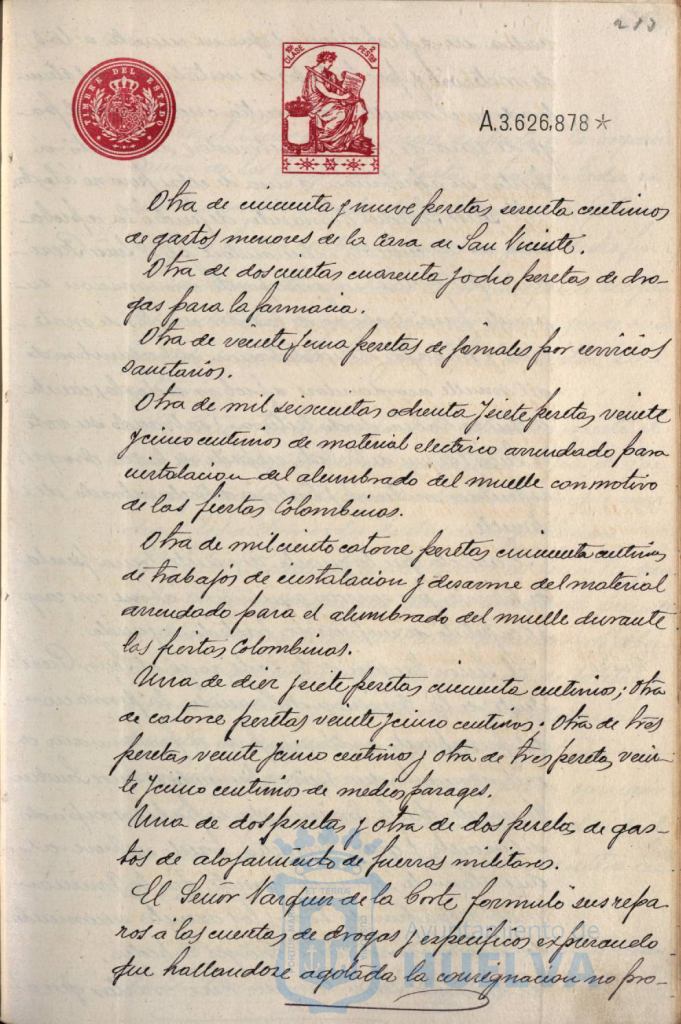 213
TIMBRE DEL ESTADO
10ª CLASE
2 PESTAS
A.3.626,878*
Otra de cincuenta y nueve pesetas sesenta centimos
de gastos menores de la casa de San Vicente.
Otra de doscientas cuarenta y ocho pesetas de dro-
gas para la farmacia.
Otra de veinte y una pesetas de jornales por servicios
sanitarios.
Otra de mil seiscientas ochenta y siete pesetas veinte
y cinco centimos de material electrico arrendado para
instalacion del alumbrado del muelle con motivo
de las fiestas Colombinas.
Otra de mil ciento catorce pesetas cincuenta centimos
de trabajos de instalacion y desarme del material
arrendado para el alumbrado del muelle durante
las fiestas Colombinas.
Una de diez y siete pesetas cincuenta centimos; Otra
de catorce pesetas veinte y cinco centimos; Otra de tres
pesetas veinte y cinco centimos y otra de tres pesetas vein-
te y cinco centimos de medios parages.
Una de dos pesetas y otra de dos pesetas de gas-
tos de alojamiento de fuerzas militares.
El Señor Vazquez de la Corte formuló sus repa-
ros á las cuentas de drogas y especificos expresando
que hallandose agotada la consignacion no pro-
Ayuntamiento de
HUELVA